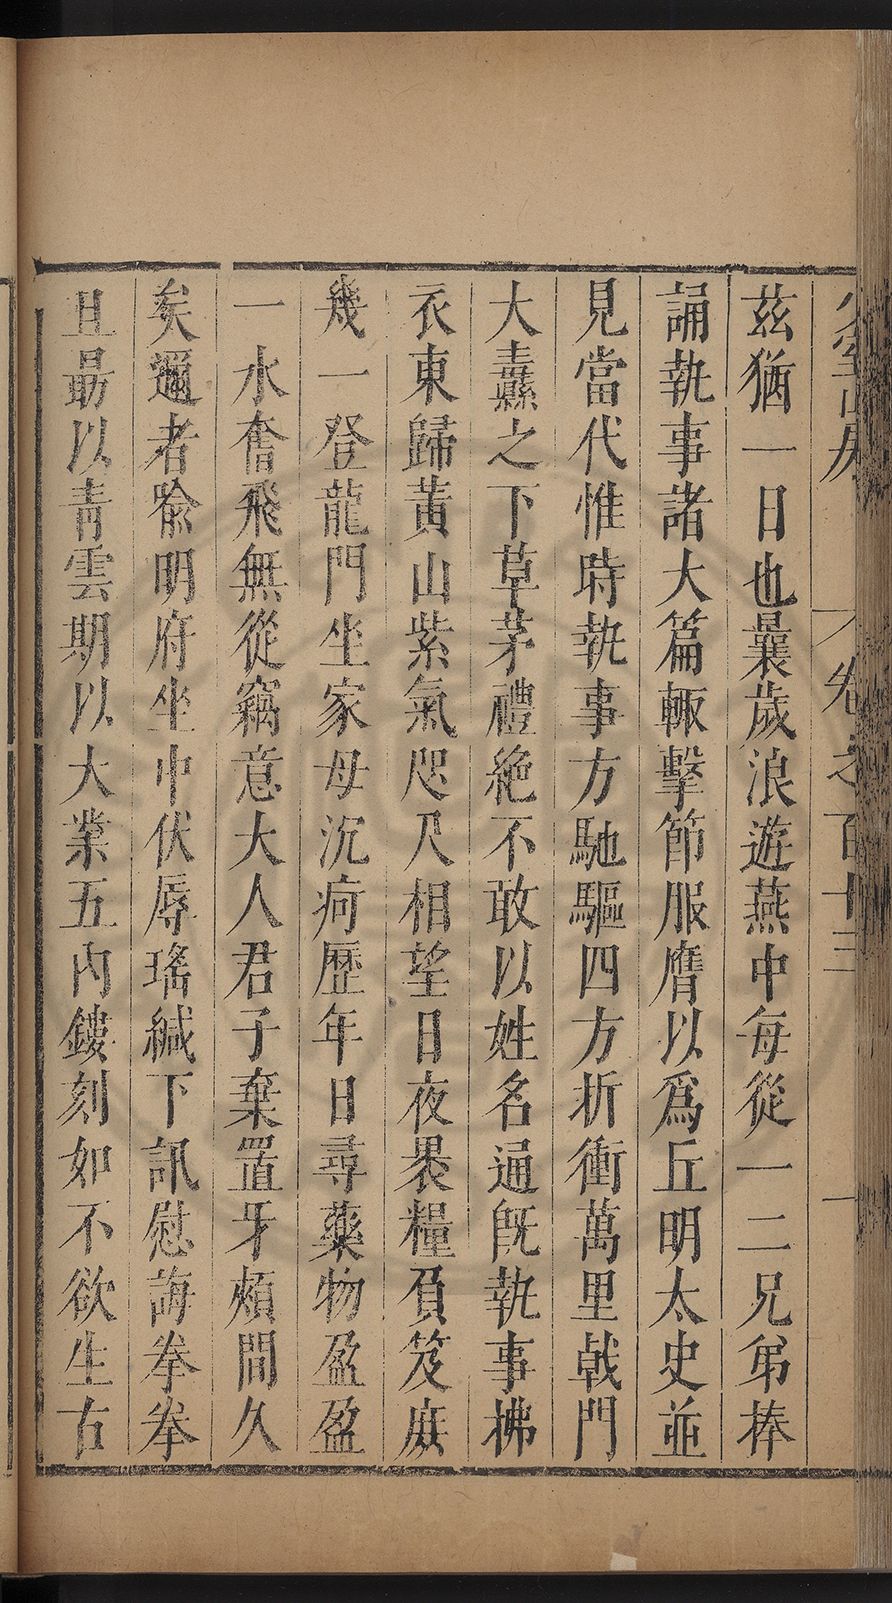 少室山房 卷之百十三 一
茲猶一日也曩歲浪遊燕中每從一二兄弟捧
誦執事諸大篇輒擊節服膺以爲丘明太史並
見當代惟時執事方馳驅四方折衝萬里戟門
大纛之下草茅禮絶不敢以姓名通旣執事拂
衣東歸黃山紫氣咫尺相望日夜褁糧負笈庻
幾一登龍門坐家母沉疴歷年日尋藥物盈盈
一水奮飛無從竊意大人君子棄置牙頰間久
矣邇者喻明府坐中伏辱瑤緘下訊慰誨拳拳
且勗以青雲期以大業五內鏤刻如不欲生古